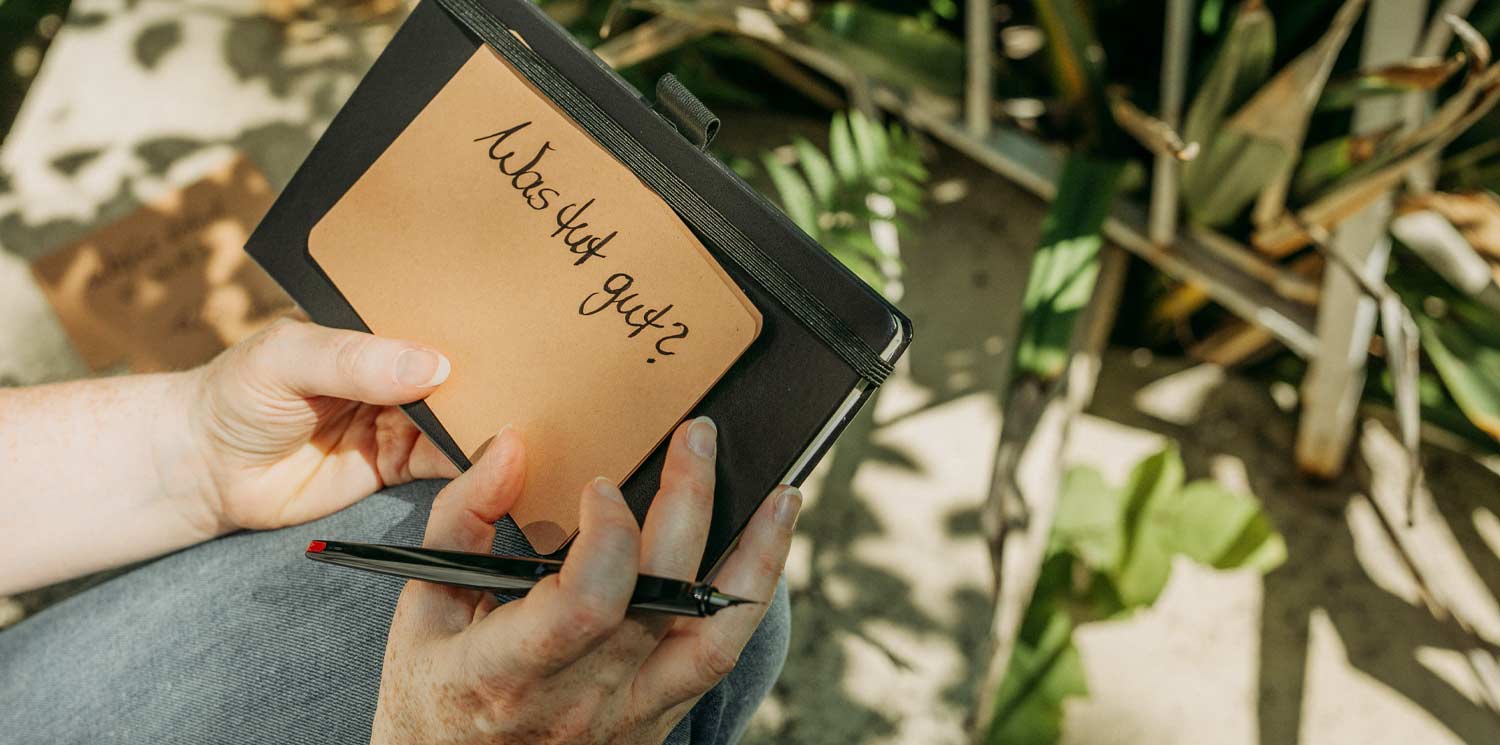 Was tut gut?